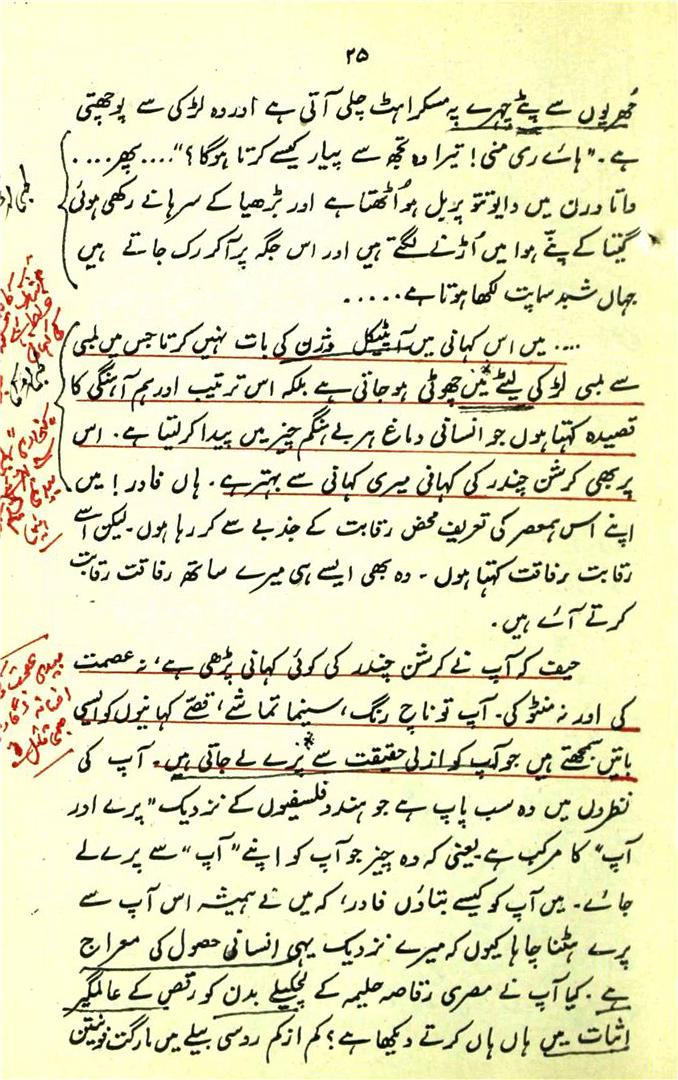 ۲۵
جُھریوں سے پٹے چہرے پہ مسکراہٹ چلی آتی ہے اور وہ لڑکی سے پوچھتی
ہے۔ "ہائے ری منی! تیرا وہ تجھ سے پیار کیسے کرتا ہوگا؟" .... پھر ....
واتا ورن میں وایو تتو پربل ہو اُٹھتا ہے اور بڑھیا کے سرہانے رکھی ہوئی
گیتا کے پنّے ہوا میں اُڑنے لگتے ہیں اور اس جگہ پر آکر رک جاتے ہیں
جہاں شبد سماپت لکھا ہوتا ہے .....
.... میں اس کہانی میں آپٹیکل وژن کی بات نہیں کرتا جس میں لمبی
سے لمبی لڑکی لیٹے میں چھوٹی ہو جاتی ہے بلکہ اس ترتیب اور ہم آہنگی کا
قصیدہ کہتا ہوں جو انسانی دماغ ہر بے ہنگم چیز میں پیدا کر لیتا ہے۔ اس
پر بھی کرشن چندر کی کہانی میری کہانی سے بہتر ہے۔ ہاں فادر! میں
اپنے اس ہمعصر کی تعریف محض رقابت کے جذبے سے کر رہا ہوں۔ لیکن اسے
رقابت رفاقت کہتا ہوں۔ وہ بھی ایسے ہی میرے ساتھ رفاقت رقابت
کرتے آئے ہیں۔
حیف کہ آپ نے کرشن چندر کی کوئی کہانی پڑھی ہے، نہ عصمت
کی اور نہ منٹو کی۔ آپ تو ناچ رنگ، سینما تماشے، قصّے کہانیوں کو ایسی
باتیں سمجھتے ہیں جو آپ کو ازلی حقیقت سے پرے لے جاتی ہیں۔ آپ کی
نظروں میں وہ سب پاپ ہے جو ہندو فلسفیوں کے نزدیک "پرے اور
آپ" کا مرکب ہے یعنی کہ وہ چیز جو آپ کو اپنے "آپ" سے پرے لے
جائے۔ میں آپ کو کیسے بتاؤں فادر، کہ میں نے ہمیشہ اس آپ سے
پرے ہٹنا چاہا کیوں کہ میرے نزدیک یہی انسانی حصول کی معراج
ہے۔ کیا آپ نے مصری رقاصہ حلیمہ کے لچکیلے بدن کو رقص کے عالمگیر
اثبات میں ہاں ہاں کرتے دیکھا ہے؟ کم از کم روسی بیلے میں مارگٹ فونٹین